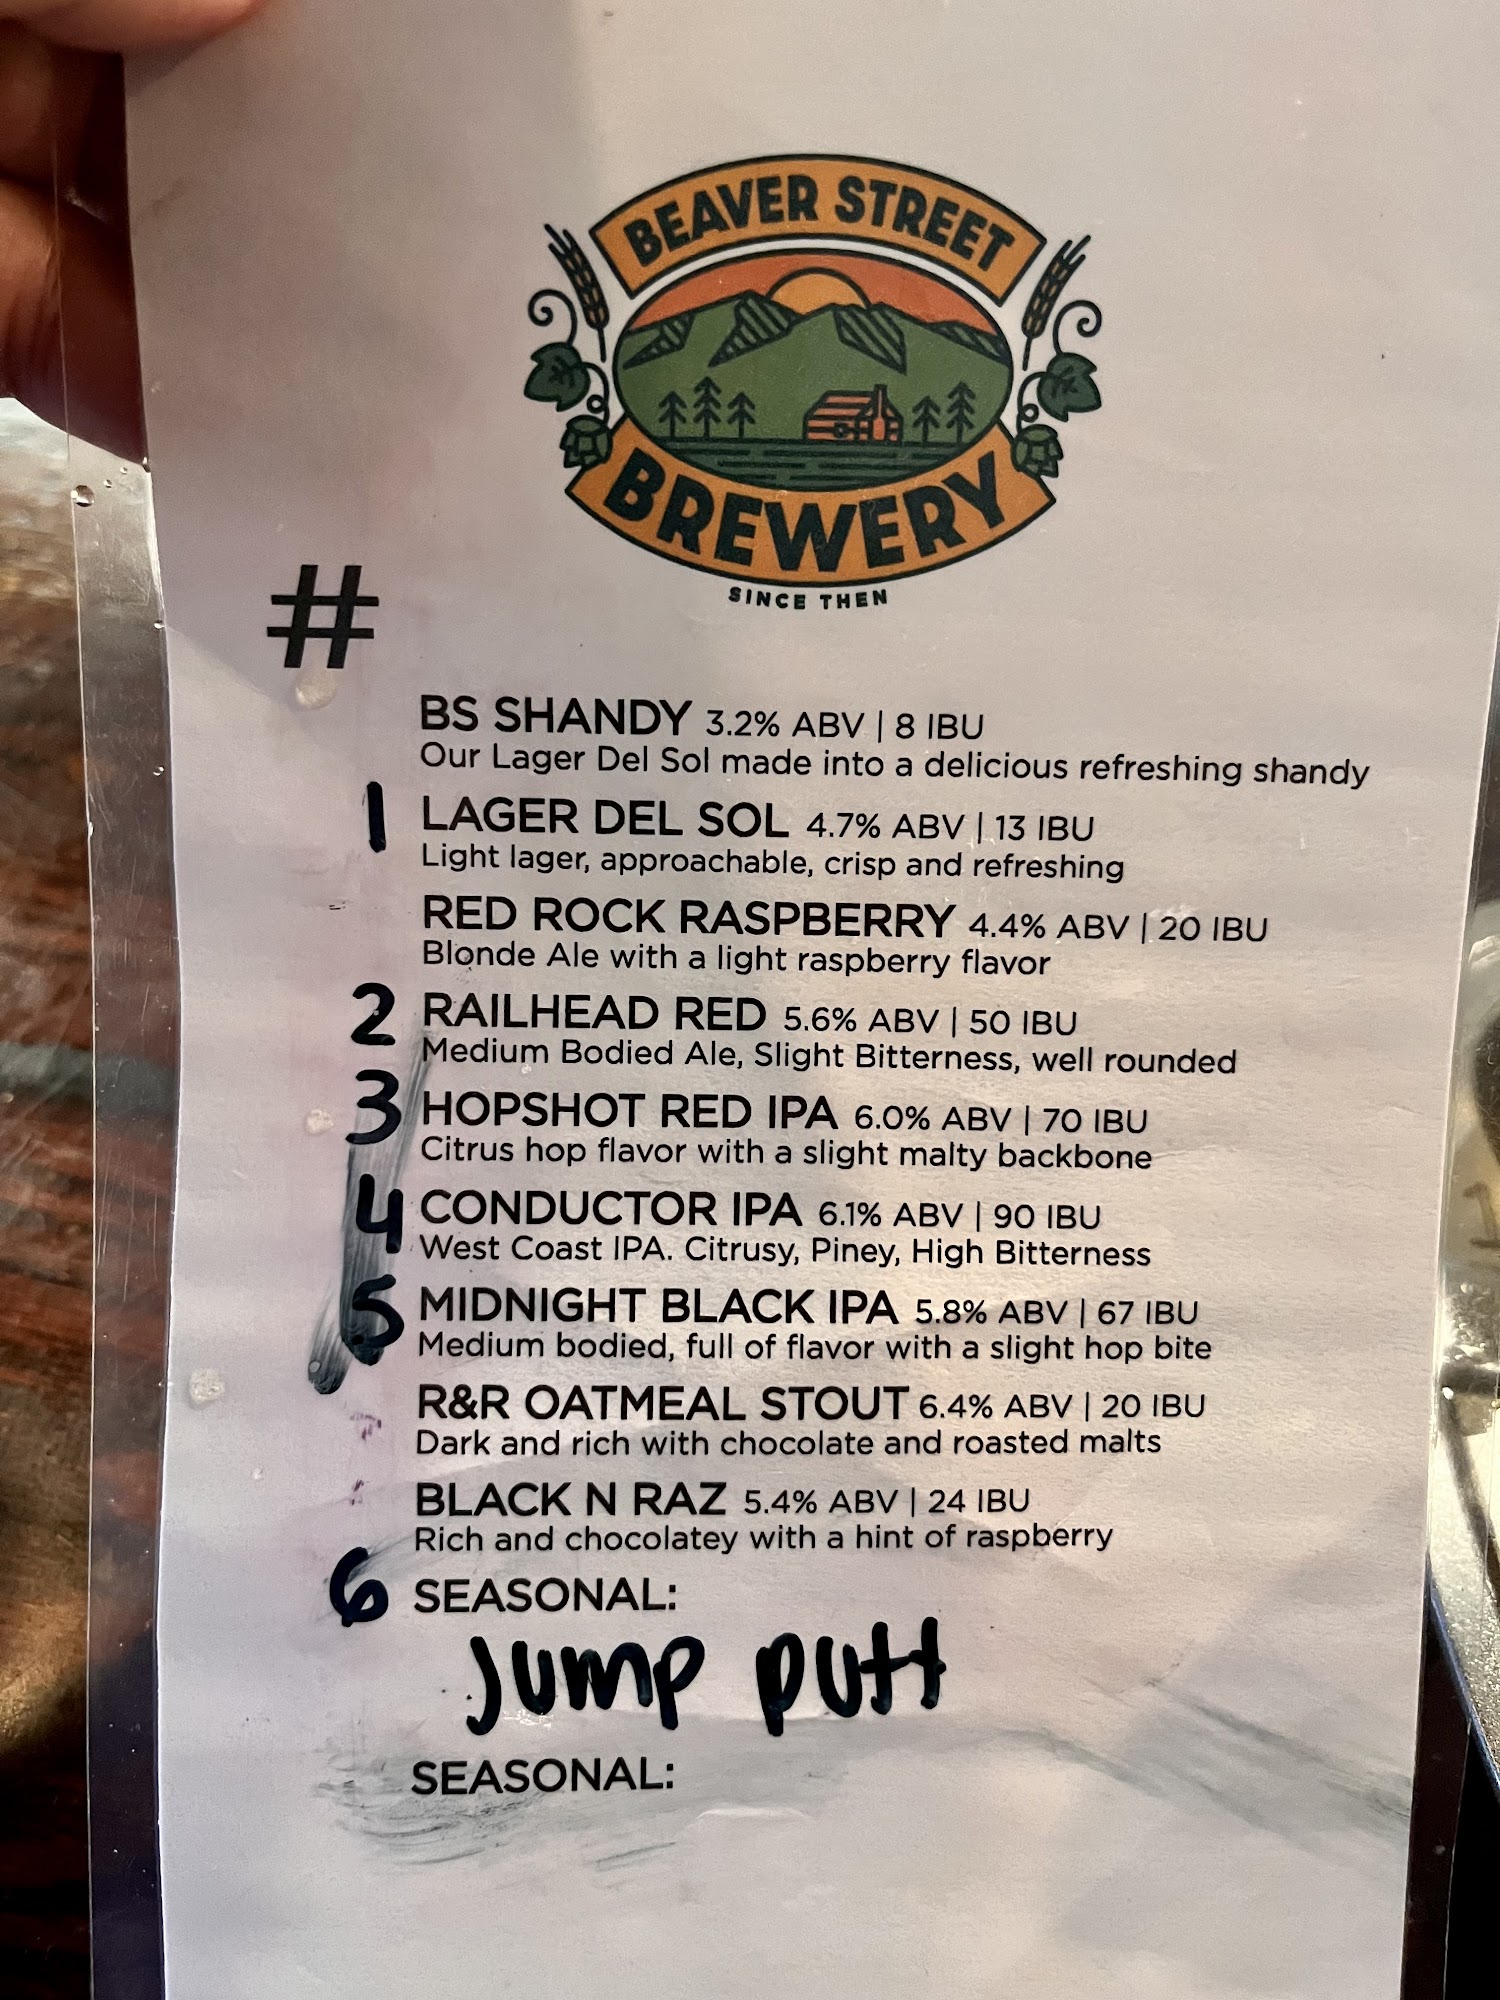 BEAVER STREET
BREWERY
SINCE THEN
#
BS SHANDY 3.2% ABV | 8 IBU
Our Lager Del Sol made into a delicious refreshing shandy
1 LAGER DEL SOL 4.7% ABV | 13 IBU
Light lager, approachable, crisp and refreshing
RED ROCK RASPBERRY 4.4% ABV | 20 IBU
Blonde Ale with a light raspberry flavor
2 RAILHEAD RED 5.6% ABV | 50 IBU
Medium Bodied Ale, Slight Bitterness, well rounded
3 HOPSHOT RED IPA 6.0% ABV | 70 IBU
Citrus hop flavor with a slight malty backbone
4 CONDUCTOR IPA 6.1% ABV | 90 IBU
West Coast IPA. Citrusy, Piney, High Bitterness
5 MIDNIGHT BLACK IPA 5.8% ABV | 67 IBU
Medium bodied, full of flavor with a slight hop bite
R&R OATMEAL STOUT 6.4% ABV | 20 IBU
Dark and rich with chocolate and roasted malts
BLACK N RAZ 5.4% ABV | 24 IBU
Rich and chocolatey with a hint of raspberry
6 SEASONAL:
Jump putt
SEASONAL: